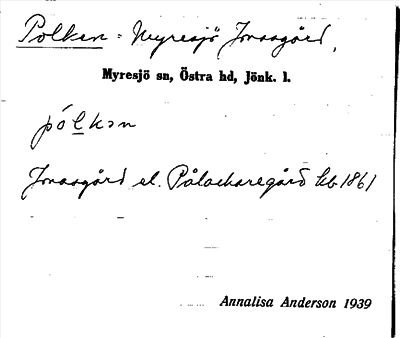 Polken = Myresjö Jonasgård,
Myresjö sn, Östra hd, Jönk. l.
pó̱lkən
Jonasgård el. Pålackaregård hb 1861
Annalisa Anderson 1939